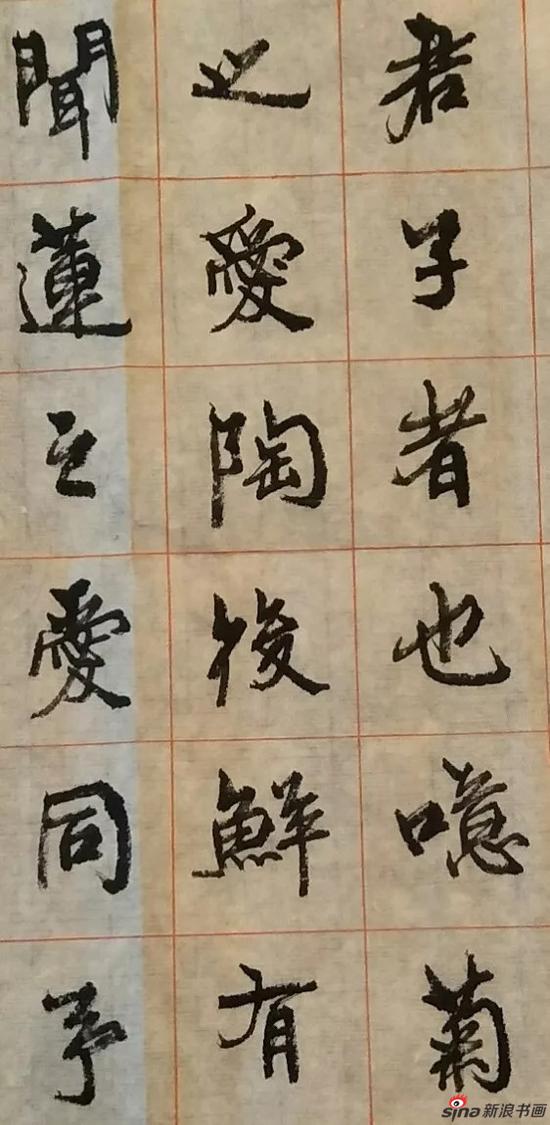 君子者也噫菊
之愛陶後鮮有
聞蓮之愛同予
sina新浪书画